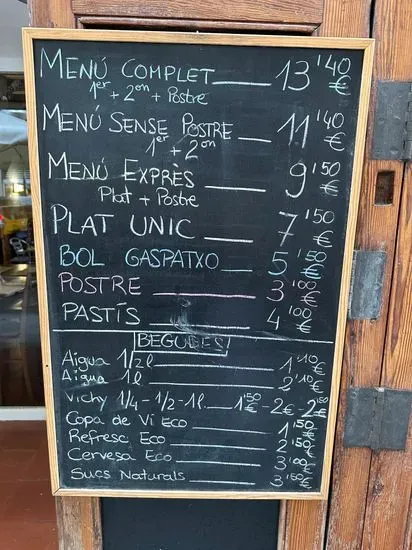 MENÚ COMPLET 13'40 €
1er + 2on + Postre
MENÚ SENSE POSTRE 11'40 €
1er + 2on
MENÚ EXPRÈS 9'50 €
Plat + Postre
PLAT UNIC 7'50 €
BOL GASPATXO 5'50 €
POSTRE 3'00 €
PASTÍS 4'00 €
BEGUDES
Aigua 1/2 l 1'10 €
Aigua 1l 2'10 €
Vichy 1/4 - 1/2 - 1l. 1'50 € - 2€ - 2'50 €
Copa de Vi Eco 1'50 €
Refresc Eco 2'50 €
Cervesa Eco 3'00 €
Sucs Naturals 3'50 €